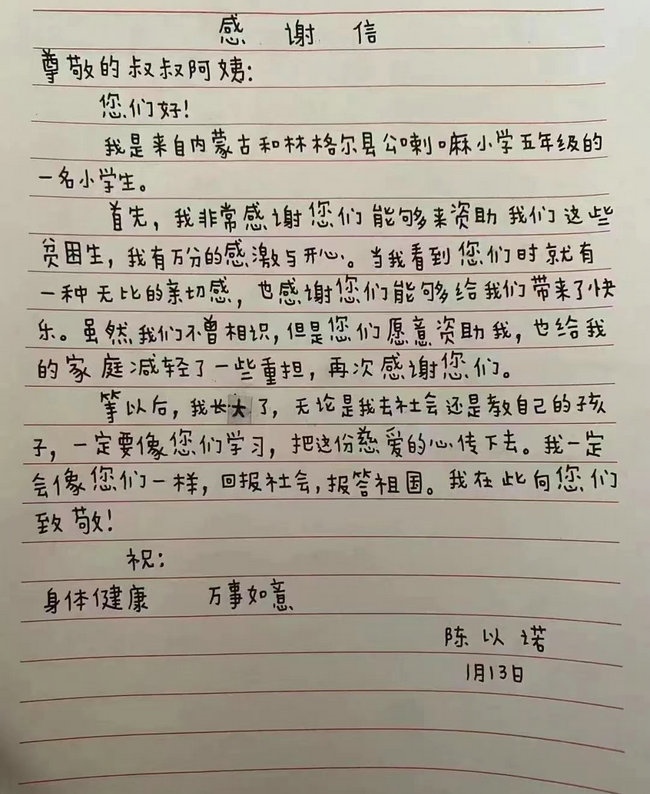 感谢信
尊敬的叔叔阿姨：
您们好！
我是来自内蒙古和林格尔县公喇嘛小学五年级的
一名小学生。
首先，我非常感谢您们能够来资助我们这些
贫困生，我有万分的感激与开心。当我看到您们时就有
一种无比的亲切感，也感谢您们能够给我们带来了快
乐。虽然我们不曾相识，但是您们愿意资助我，也给我
的家庭减轻了一些重担，再次感谢您们。
等以后，我长大了，无论是我去社会还是教自己的孩
子，一定要像您们学习，把这份慈爱的心传下去。我一定
会像您们一样，回报社会，报答祖国。我在此向您们
致敬！
祝：
身体健康 万事如意
陈以诺
1月13日